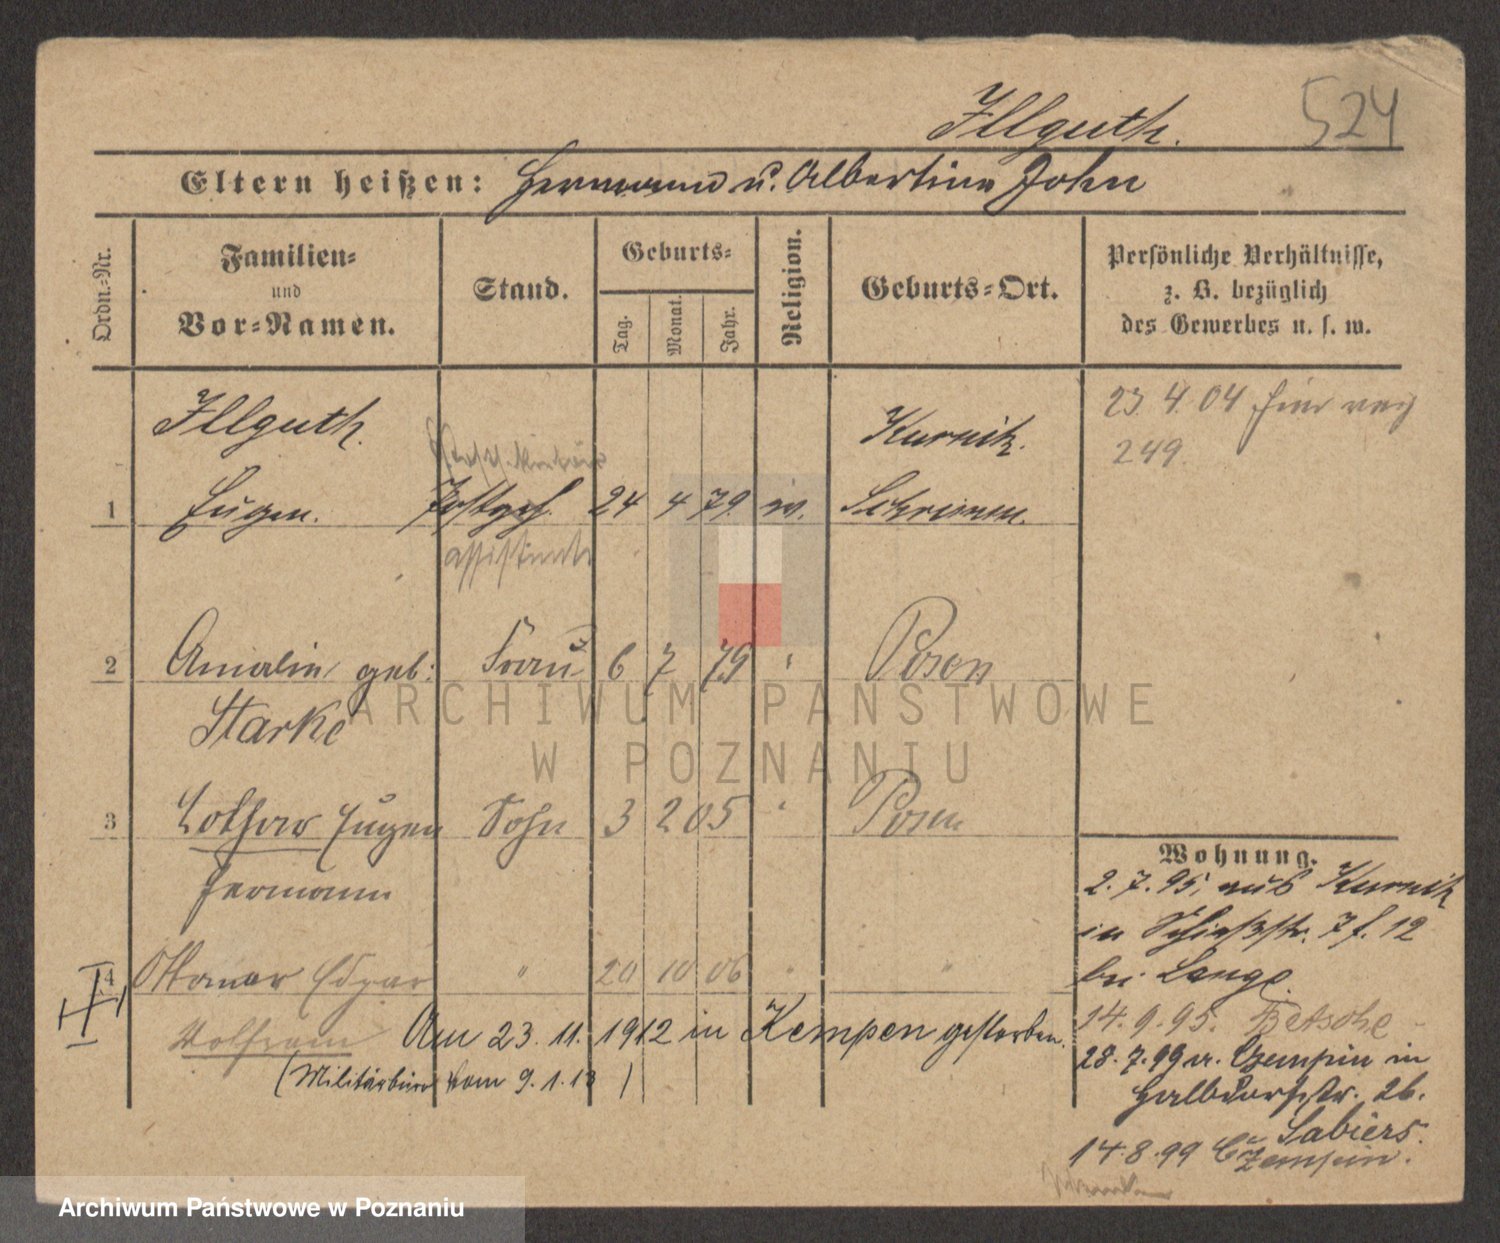 Illguth.
524
Eltern heißen: Hermann u. Albertine John
Ordn.-Nr.
Familien-
und
Vor-Namen.
Stand.
Geburts-
Tag.
Monat.
Jahr.
Religion.
Geburts-Ort.
Persönliche Verhältnisse,
z. B. bezüglich
des Gewerbes u. s. w.
Illguth.
Kurnik.
23. 4. 04 hier
249
1 Eugen. Postgeh. 24 4 79 ev. Schrimm.
assistent
2 Amalie geb: Frau 6 7 79 " Posen
Starke
3 Lothar Eugen Sohn 3 2 05 " Posen
Hermann
4 Ottomar Edgar " 20 10 06 " "
Wolfram
Am 23. 11. 1912 in Kempen gestorben.
(Militärbüro vom 9. 1. 13)
Wohnung.
2. 7. 95, aus Kurnik
in Schießstr. 7 f. 12
bei Lange.
14. 9. 95. Betsche
28. 7. 99 v. Czempin in
Halbdorfstr. 26.
Sabiers.
14. 8. 99 Czempin.
ARCHIWUM PAŃSTWOWE
W POZNANIU
Archiwum Państwowe w Poznaniu